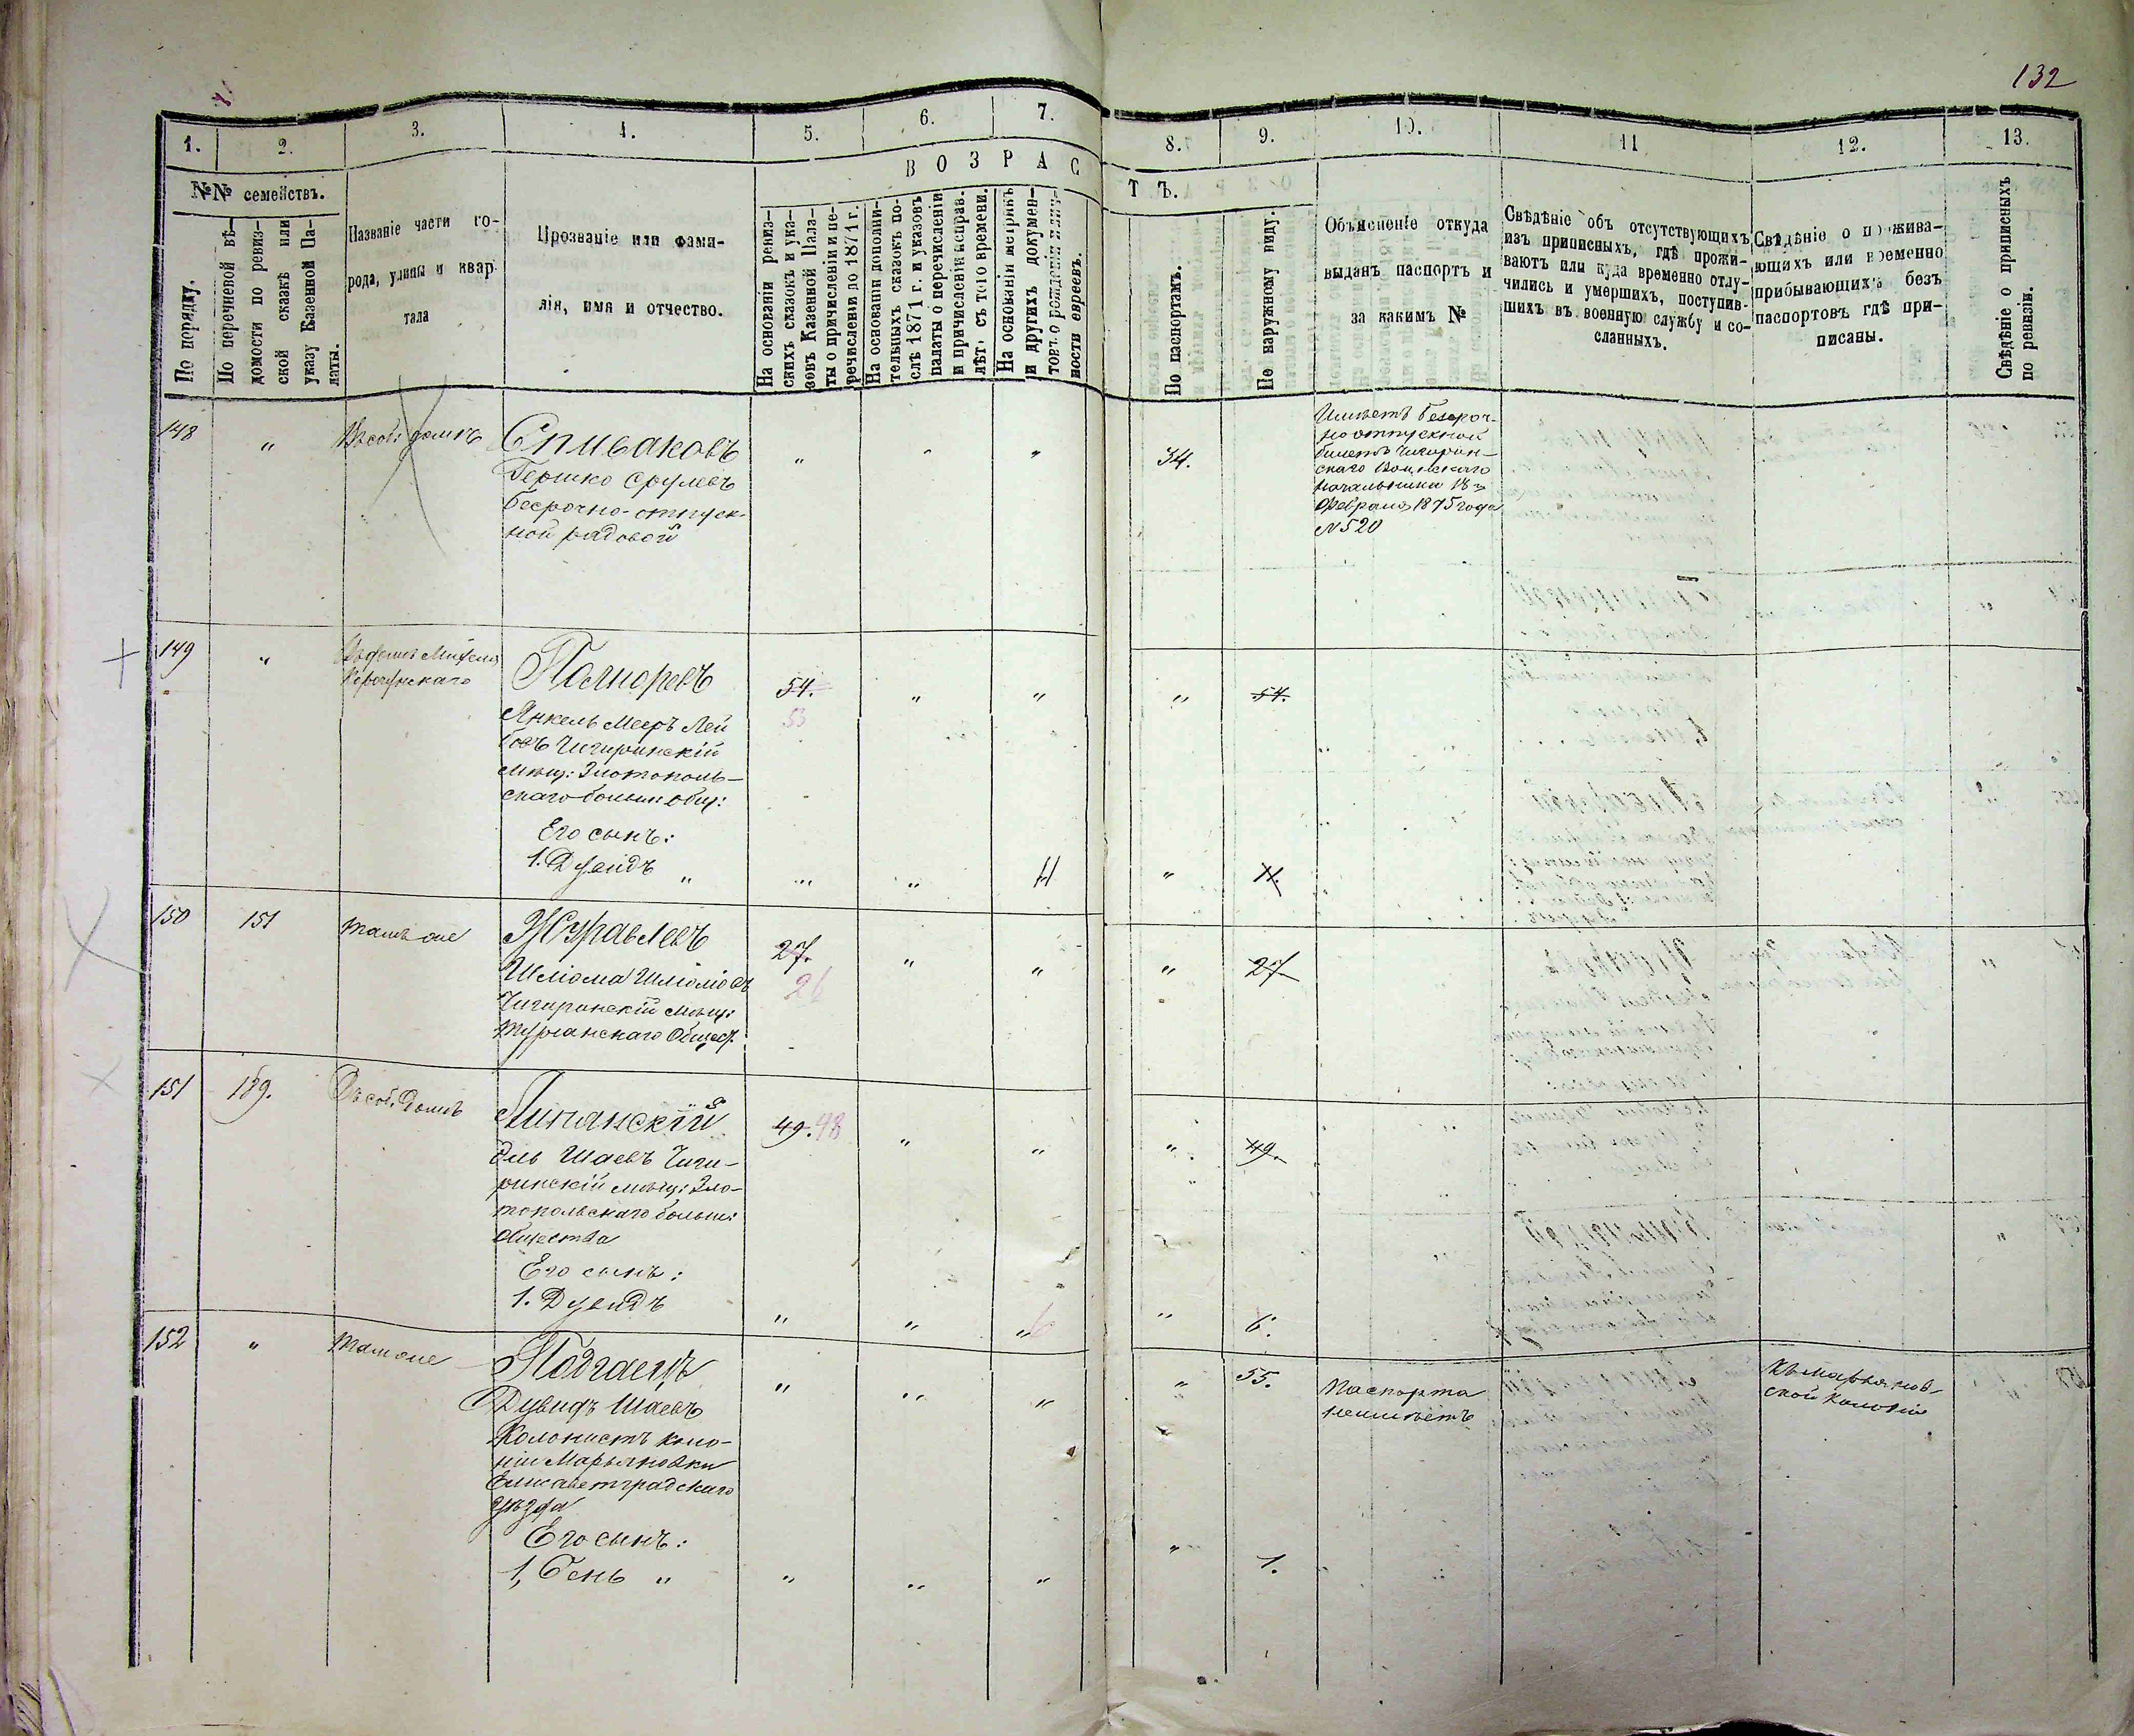 132
1. 2. 3. 4. 5. 6. 7. 8. 9. 10. 11 12. 13.
№№ семействъ.
ВОЗРАСТЪ.
По порядку.
По перечневой вѣ-
домости по ревиз-
ской сказкѣ или
указу Казенной Па-
латы.
Названіе части го-
рода, улицы и квар-
тала
Прозваніе или фами-
лія, имя и отчество.
На основаніи ревиз-
скихъ сказокъ и ука-
зовъ Казенной Пала-
ты о причисленіи и пе-
речисленіи до 1871 г.
На основаніи дополни-
тельныхъ сказокъ по-
слѣ 1871 г. и указовъ
палаты о перечисленіи
и причисленіи исправ.
лѣт. съ того времени.
На основаніи метрикъ
и другихъ докумен-
товъ о рожденіи и лич-
ности евреевъ.
По паспортамъ.
По наружному виду.
Объясненіе откуда
выданъ паспортъ и
за какимъ №
Свѣдѣніе объ отсутствующихъ
изъ приписныхъ, гдѣ прожи-
ваютъ или куда временно отлу-
чились и умершихъ, поступив-
шихъ въ военную службу и со-
сланныхъ.
Свѣдѣніе о прожива-
ющихъ или временно
прибывающихъ безъ
паспортовъ гдѣ при-
писаны.
Свѣдѣніе о приписныхъ
по ревизіи.
148 " Въ соб: домѣ Спиваковъ " " " 34.
Гершко Срулевъ
бесрочно-отпуск-
ной радовой
Имѣетъ безсроч-
но отпускной
билетъ Чигирин-
скаго Воинскаго
Начальника 18
Февраля 1875 года
№ 520
149 " Въ домѣ
Полноревъ 54. " " " 54.
53
Янкель Мееръ Лей
бовъ Чигиринскій
мѣщ: Златополь-
скаго больш общ:
Его сынъ:
1. Дувидъ " " " 11 " 11.
150 151 тамъ же Журавлевъ 27. " " " 27.
26
Шліома Шліомовъ
Чигиринскій мѣщ:
Турianскаго Общес.
151 189. Въ соб. домѣ Липянскій 49. 48 " " " 49.
Эль Шаевъ Чиги-
ринскій мѣщ: Зла-
топольскаго больш:
общества
Его сынъ:
1. Дувидъ " " " 6 " 6.
152 " тамже Подгаецъ " " " " 55.
Дувидъ Шаевъ
Колонистъ коло-
ніи Марьяновки
Елисаветградскаго
уѣзда
Паспорта
неимѣетъ
Къ Марьянов-
ской Колоніи
Его сынъ:
1, Бень " " " " " 1.